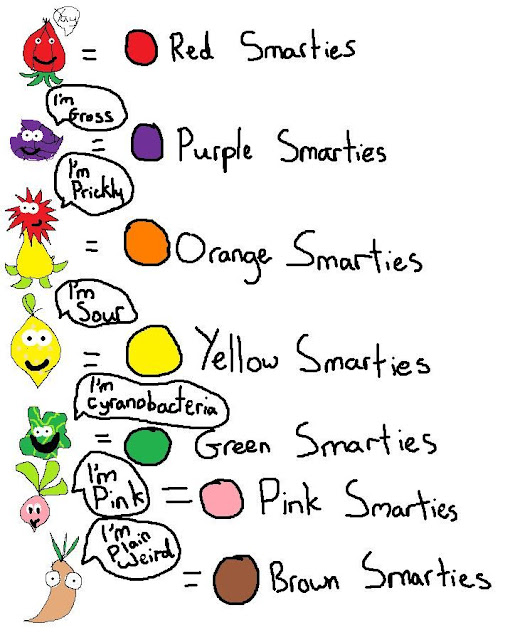 Yay
= Red Smarties
I'm
Gross
= Purple Smarties
I'm
Prickly
= Orange Smarties
I'm
Sour
= Yellow Smarties
I'm
Cyranobacteria
= Green Smarties
I'm
Pink
= Pink Smarties
I'm
Plain
Weird
= Brown Smarties